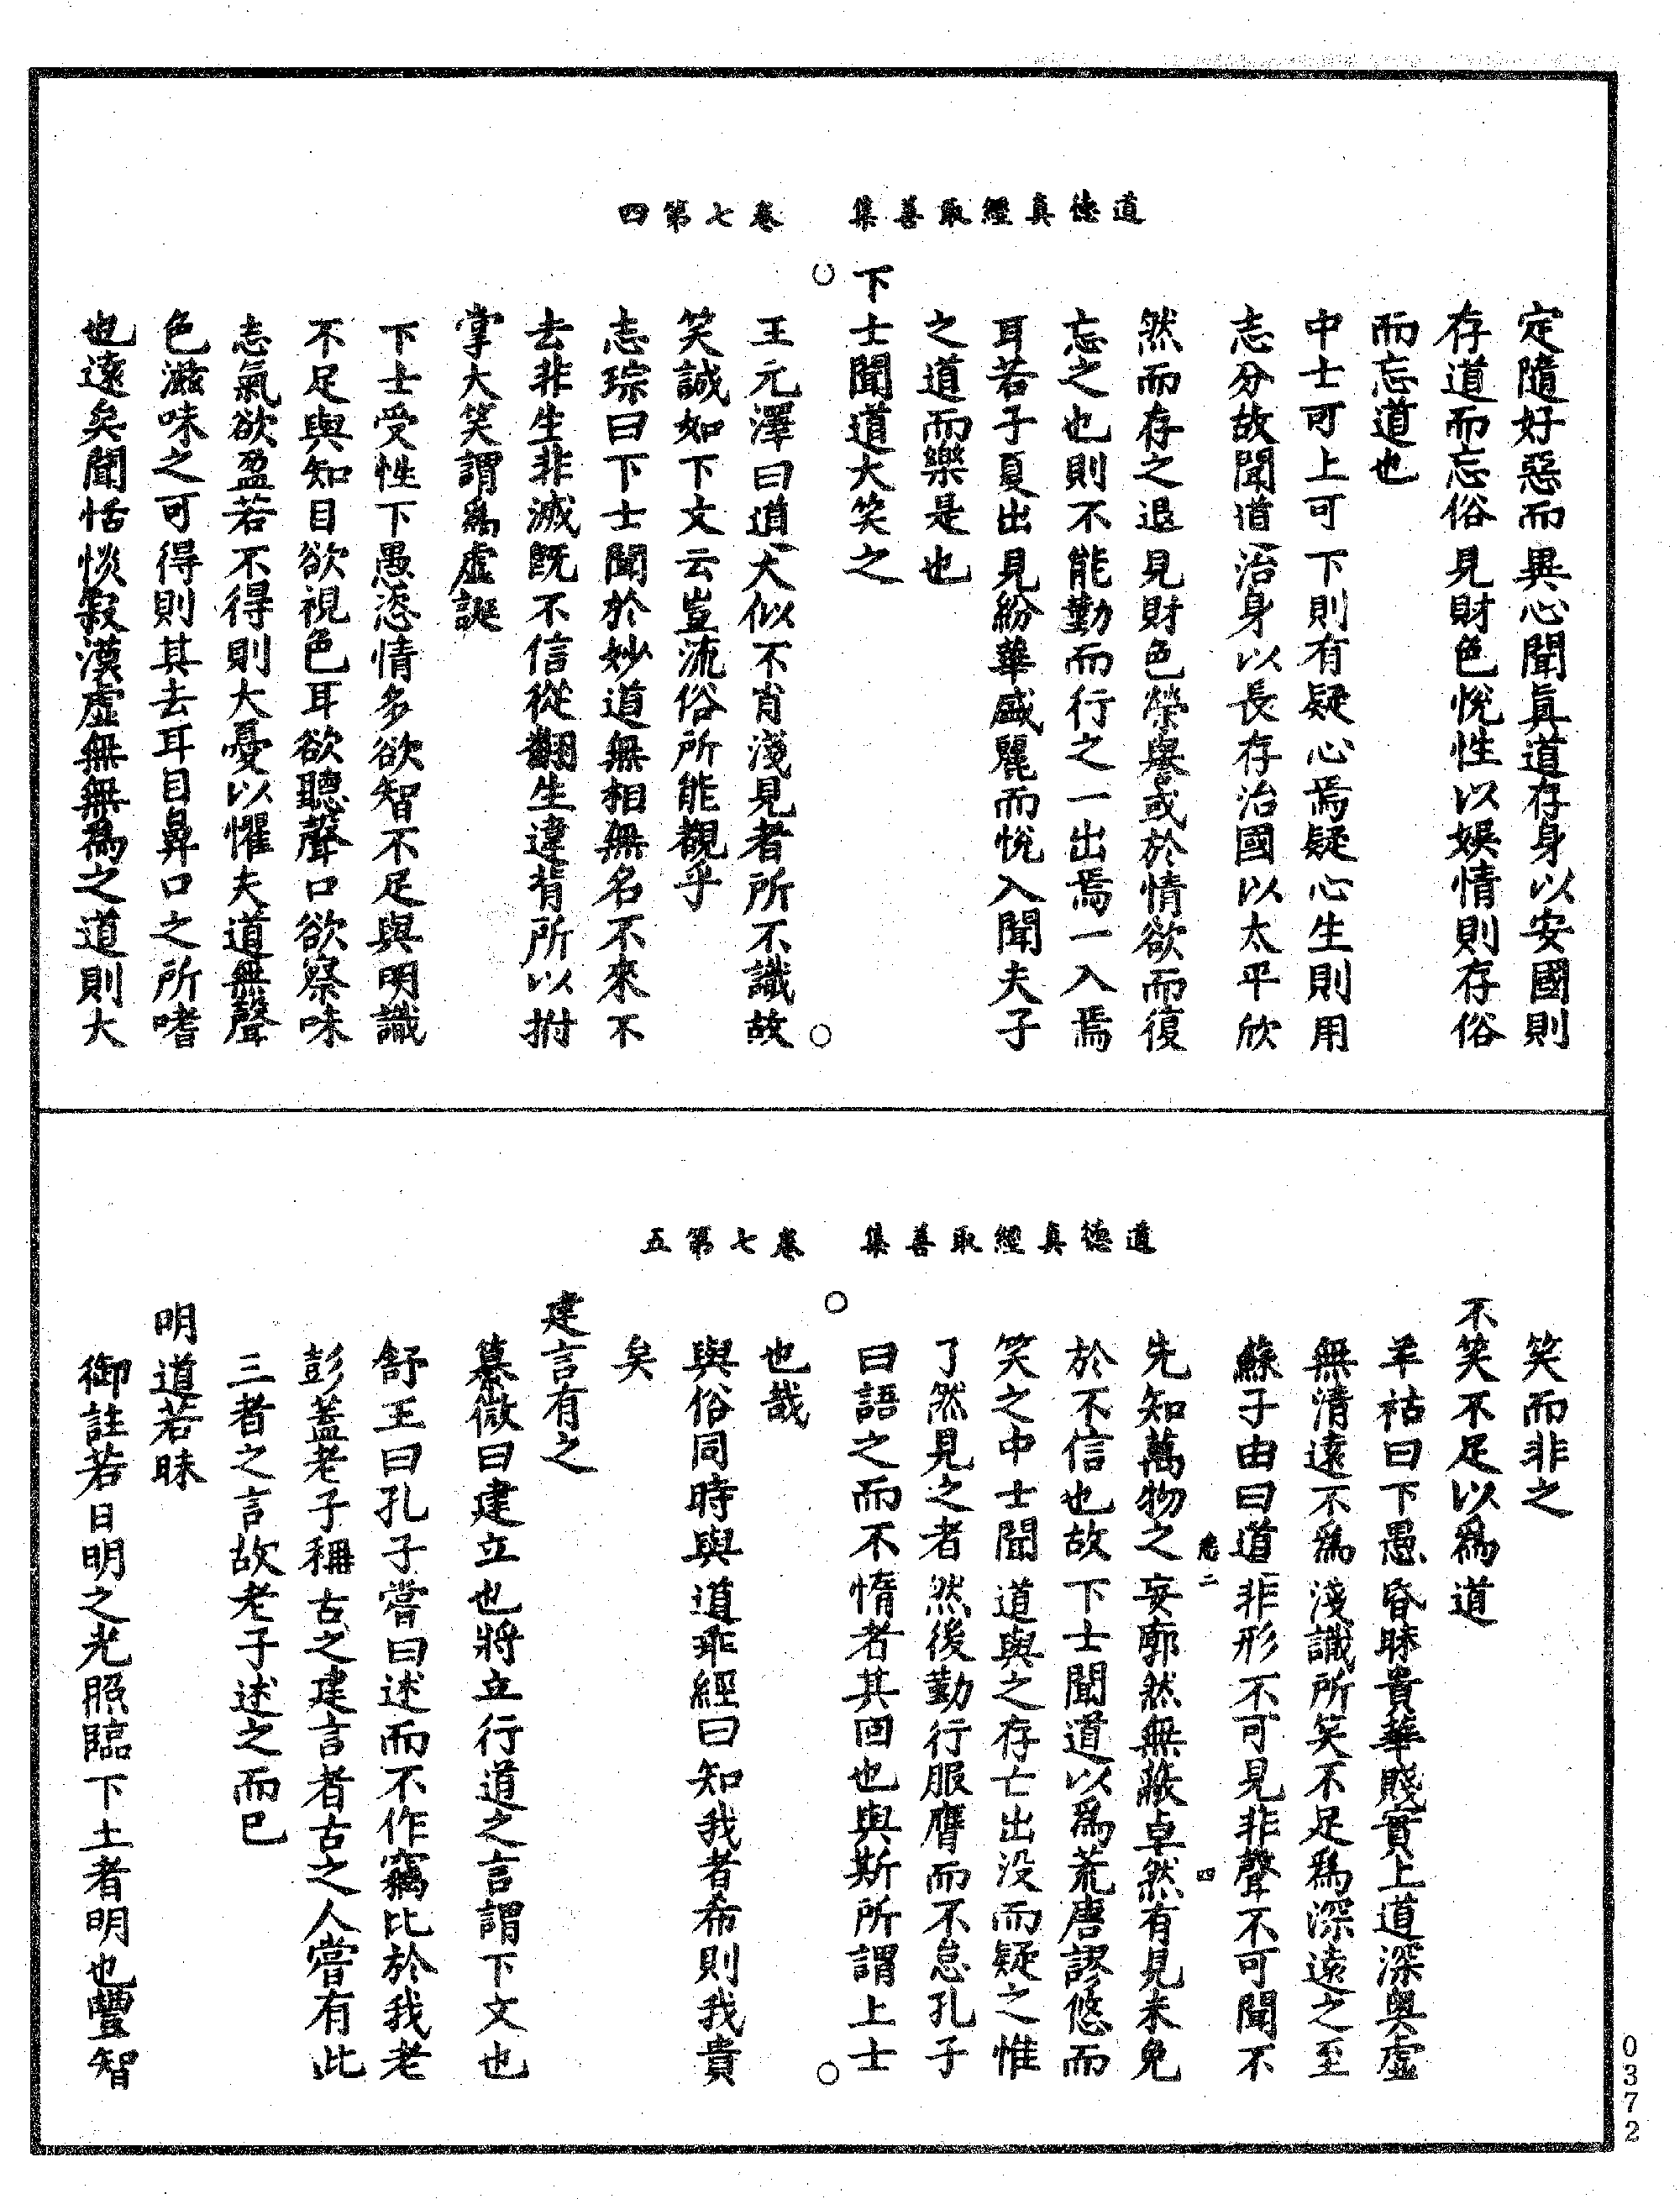 道德真經取善集　卷七第四
定隨好惡而異心聞真道存身以安國則
存道而忘俗見財色悅性以娛情則存俗
而忘道也
中士可上可下則有疑心焉疑心生則用
志分故聞道治身以長存治國以太平欣
然而存之退見財色榮譽或於情欲而復
忘之也則不能勤而行之一出焉一入焉
耳若子夏出見紛華盛麗而悅入聞夫子
之道而樂是也
下士聞道大笑之
王元澤曰道大似不肖淺見者所不識故
笑誠如下文云豈流俗所能觀乎
志琮曰下士聞於妙道無相無名不來不
去非生非滅既不信從翻生違背所以拊
掌大笑謂為虛誕
下士受性下愚恣情多欲智不足與明識
不足與知目欲視色耳欲聽聲口欲察味
志氣欲盈若不得則大憂以懼夫道無聲
色滋味之可得則其去耳目鼻口之所嗜
也遠矣聞恬惔寂漠虛無無為之道則大
道德真經取善集　卷七第五
笑而非之
不笑不足以為道
羊祜曰下愚昏昧貴華賤實上道深奧虛
無清遠不為淺識所笑不足為深遠之至
蘇子由曰道非形不可見非聲不可聞不
二　四
先知萬物之妄廓然無蔽卓然有見未免
於不信也故下士聞道以為荒唐謬悠而
笑之中士聞道與之存亡出没而疑之惟
了然見之者然後勤行服膺而不怠孔子
曰語之而不惰者其囘也與斯所謂上士
也哉
與俗同時與道乖經曰知我者希則我貴
矣
建言有之
纂微曰建立也將立行道之言謂下文也
舒王曰孔子嘗曰述而不作竊比於我老
彭蓋老子稱古之建言者古之人嘗有此
三者之言故老子述之而已
明道若昧
御註若日明之光照臨下土者明也豐智
0372